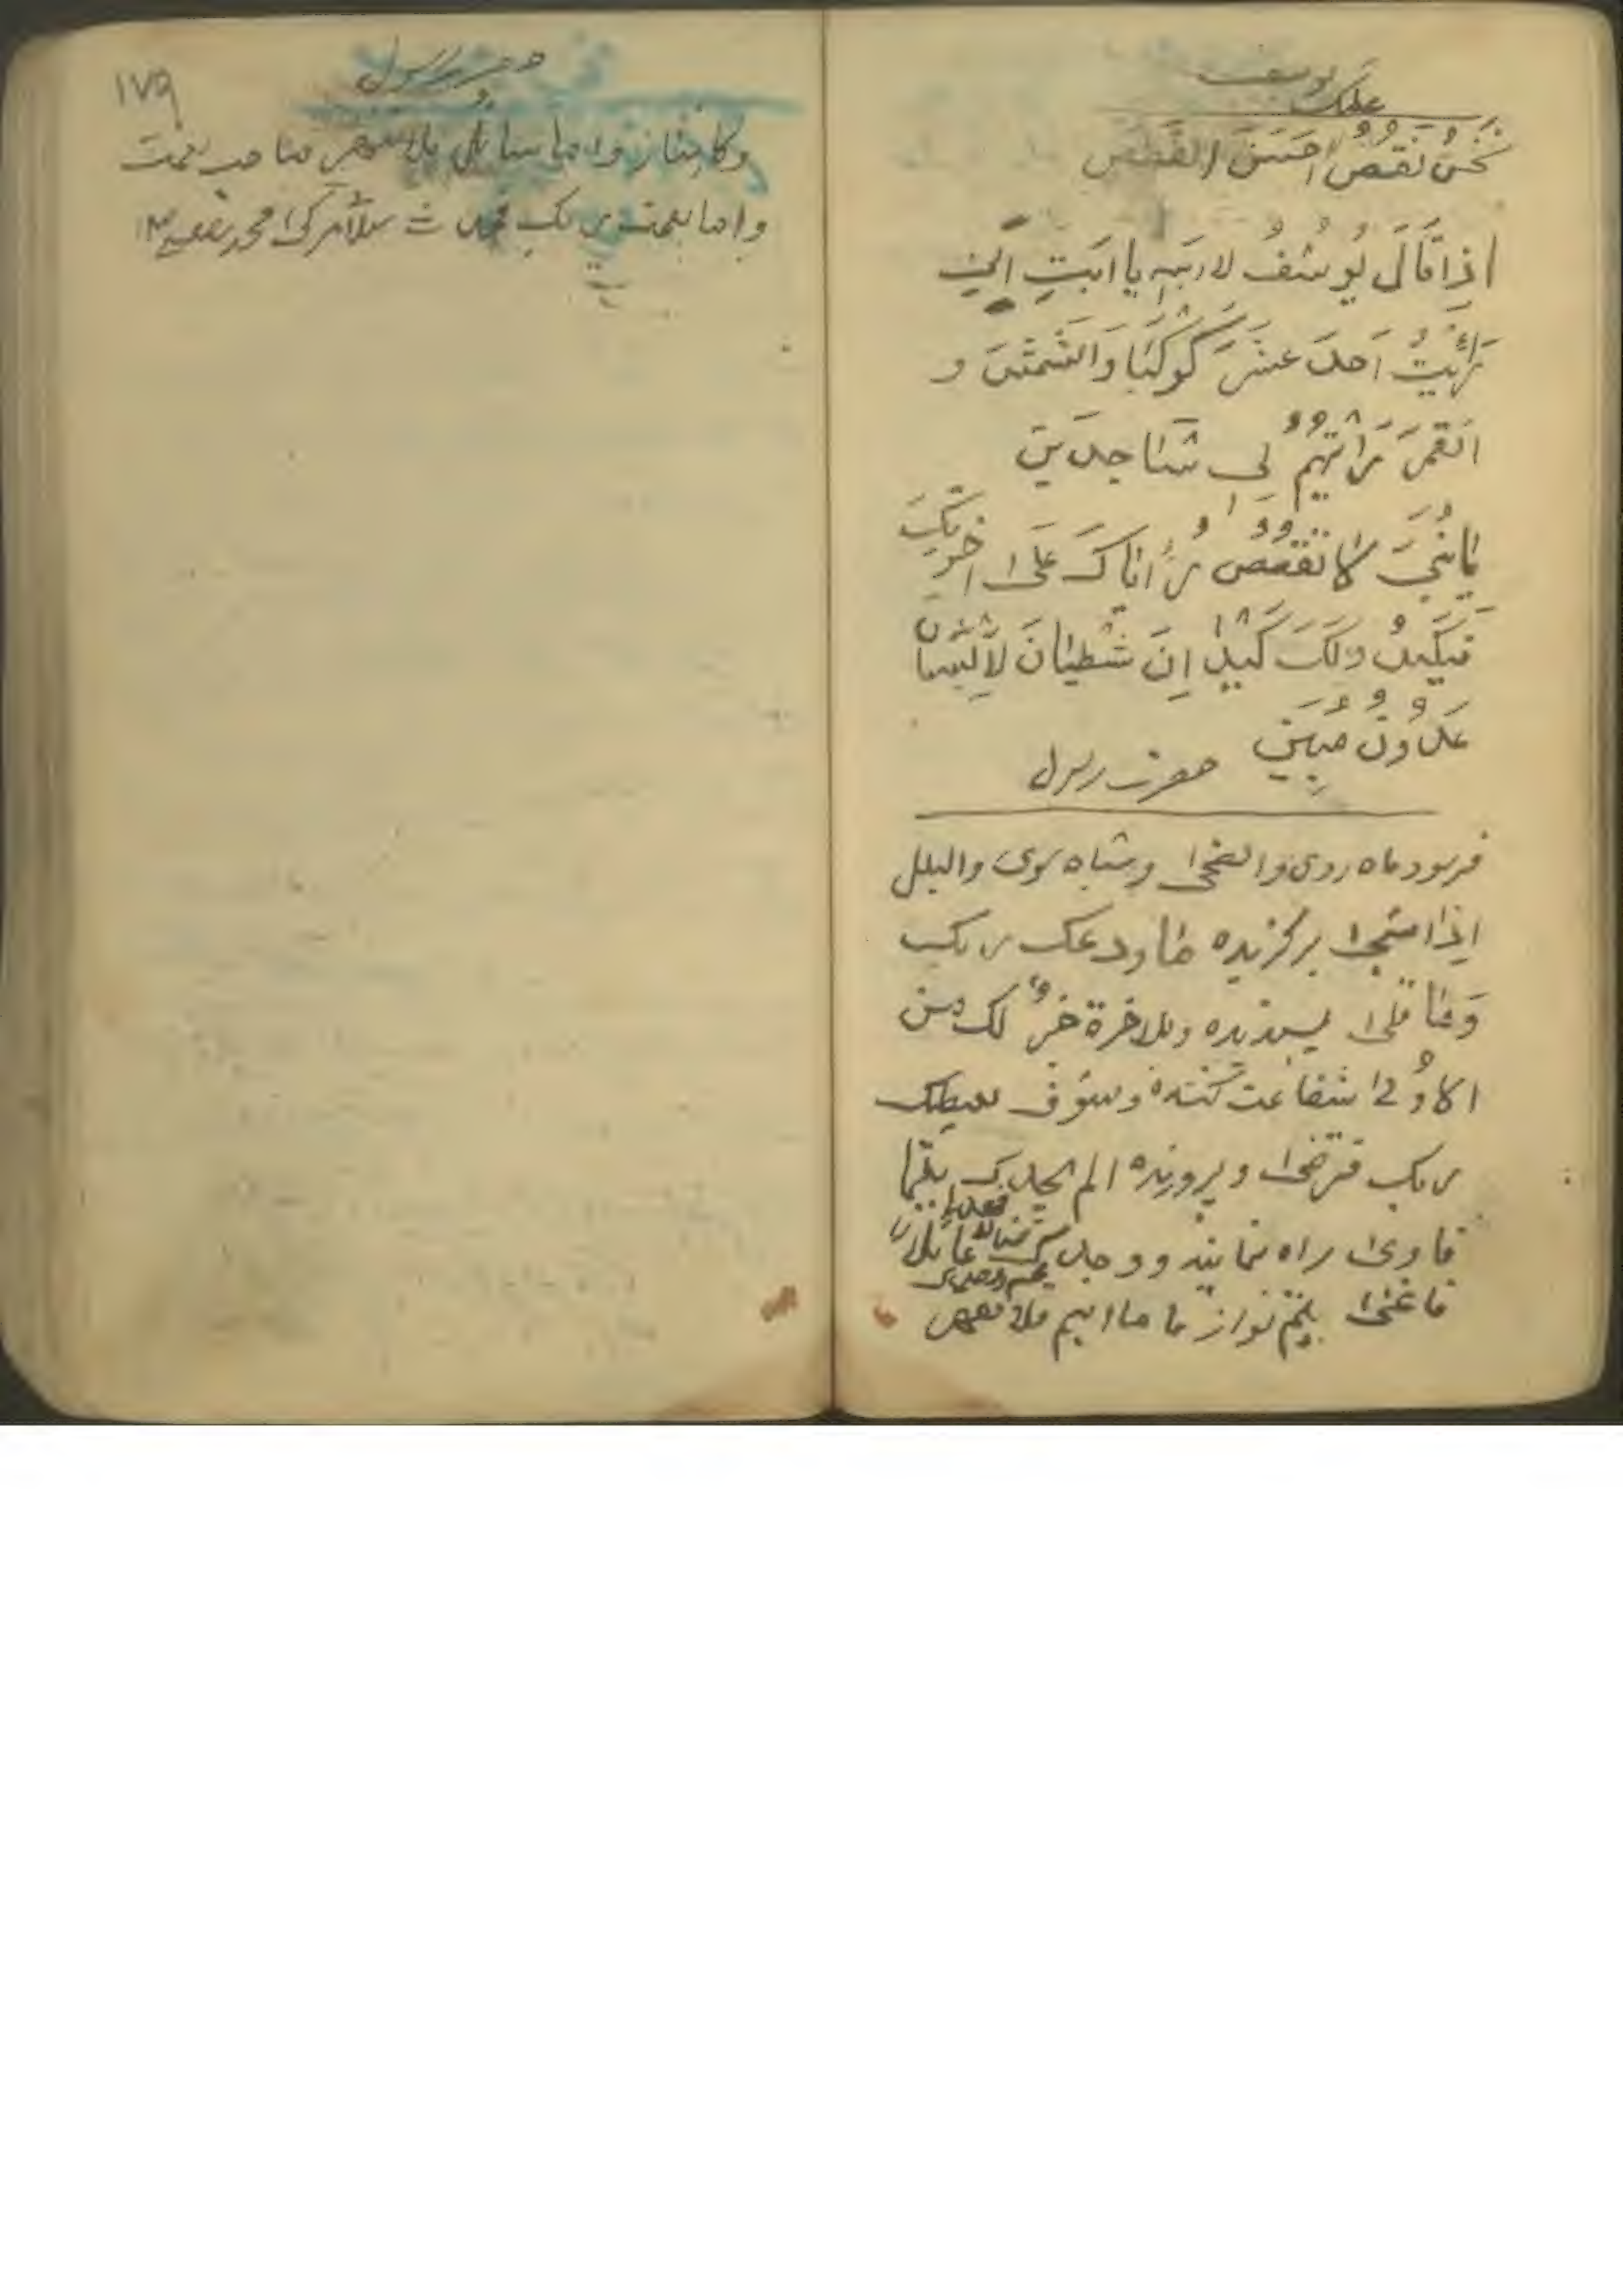 یوسف
علیک
نَحْنُ نَقُصُّ اَحْسَنَ القَصَصِ
اِذا قَالَ یُوسُفُ لا اَبیهِ یا اَبَتِ اِنّی
رَأَیتُ اَحَدَ عَشَرَ کَوکَبا وَالشَمسَ و
القَمَرَ رَاَیتُهُم لی سٰاجِدینَ
یا بُنَیَ لا تَقصُص رُءیاکَ عَلی اخوتِکَ
فَیَکیدُ ولَکَ کَیدا اِنَ شَطیانَ لِلاِنسان
عَدُوٌ مُبین حضرت رسول
فرمود ماه روی والضحی و سیاه موی والیل
اذا سجی برگزیده ما ودعک ربک
وَما قلی پسندیده وللاخرة خیر لک من
الاولی شفاعت کننده وسوف یعطیک
ربک فترضی و پرورنده الم یجدک یتیما
فاوی راه نماینده ووجدک ضالا فهدی عائلا
فاغنی یتیم نواز فاما الیتیم فلا تقهر
۱۷۹
حضرت رسول
واما سائل فلا تنهر صاحب نعمت
واما بنعمت ربک فحدث